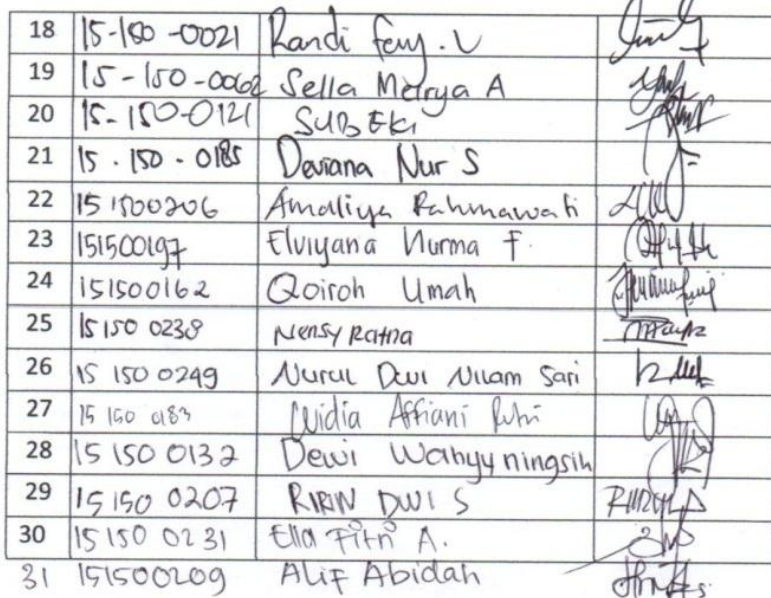 18 15-150-0021 Randi Fery. V
19 15-150-0062 Sella Metrya A
20 15-150-0121 SUBEKI
21 15.150-0185 Deviana Nur S
22 151500206 Amaliya Rahmawati
23 151500197 Elviyana Nurma F.
24 151500162 Qoiroh Umah
25 15 150 0238 Nensy Ratna
26 15 150 0249 Nurul Dwi Nilam Sari
27 15 150 0183 Widia Affiani Putri
28 15 150 0132 Dewi Wahyyningsih
29 15 150 0207 RIRIN DWI S
30 15 150 0231 Ella Fitri A.
31 151500209 ALIF Abidah